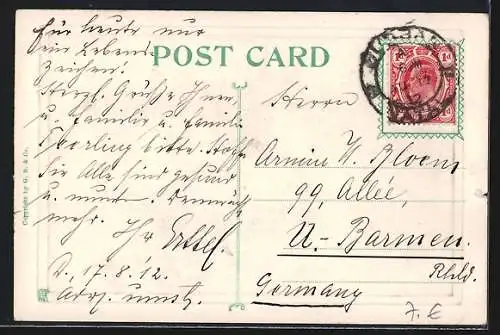 für heute nur
ein Lebens-
zeichen!
POST CARD
Herzl. Grüße Ihnen
u. Familie u. Familie
bitte. Hoffe
Sie Alle sind gesund
u. munter. Demnächst
mehr. Ihr
D., 17.8.12.
Herrn
W. Bloem
99, Allée,
U-Barmen
Rhld.
Germany
Copyright by G. B. & Co.
NATAL
1d 1d
7.E